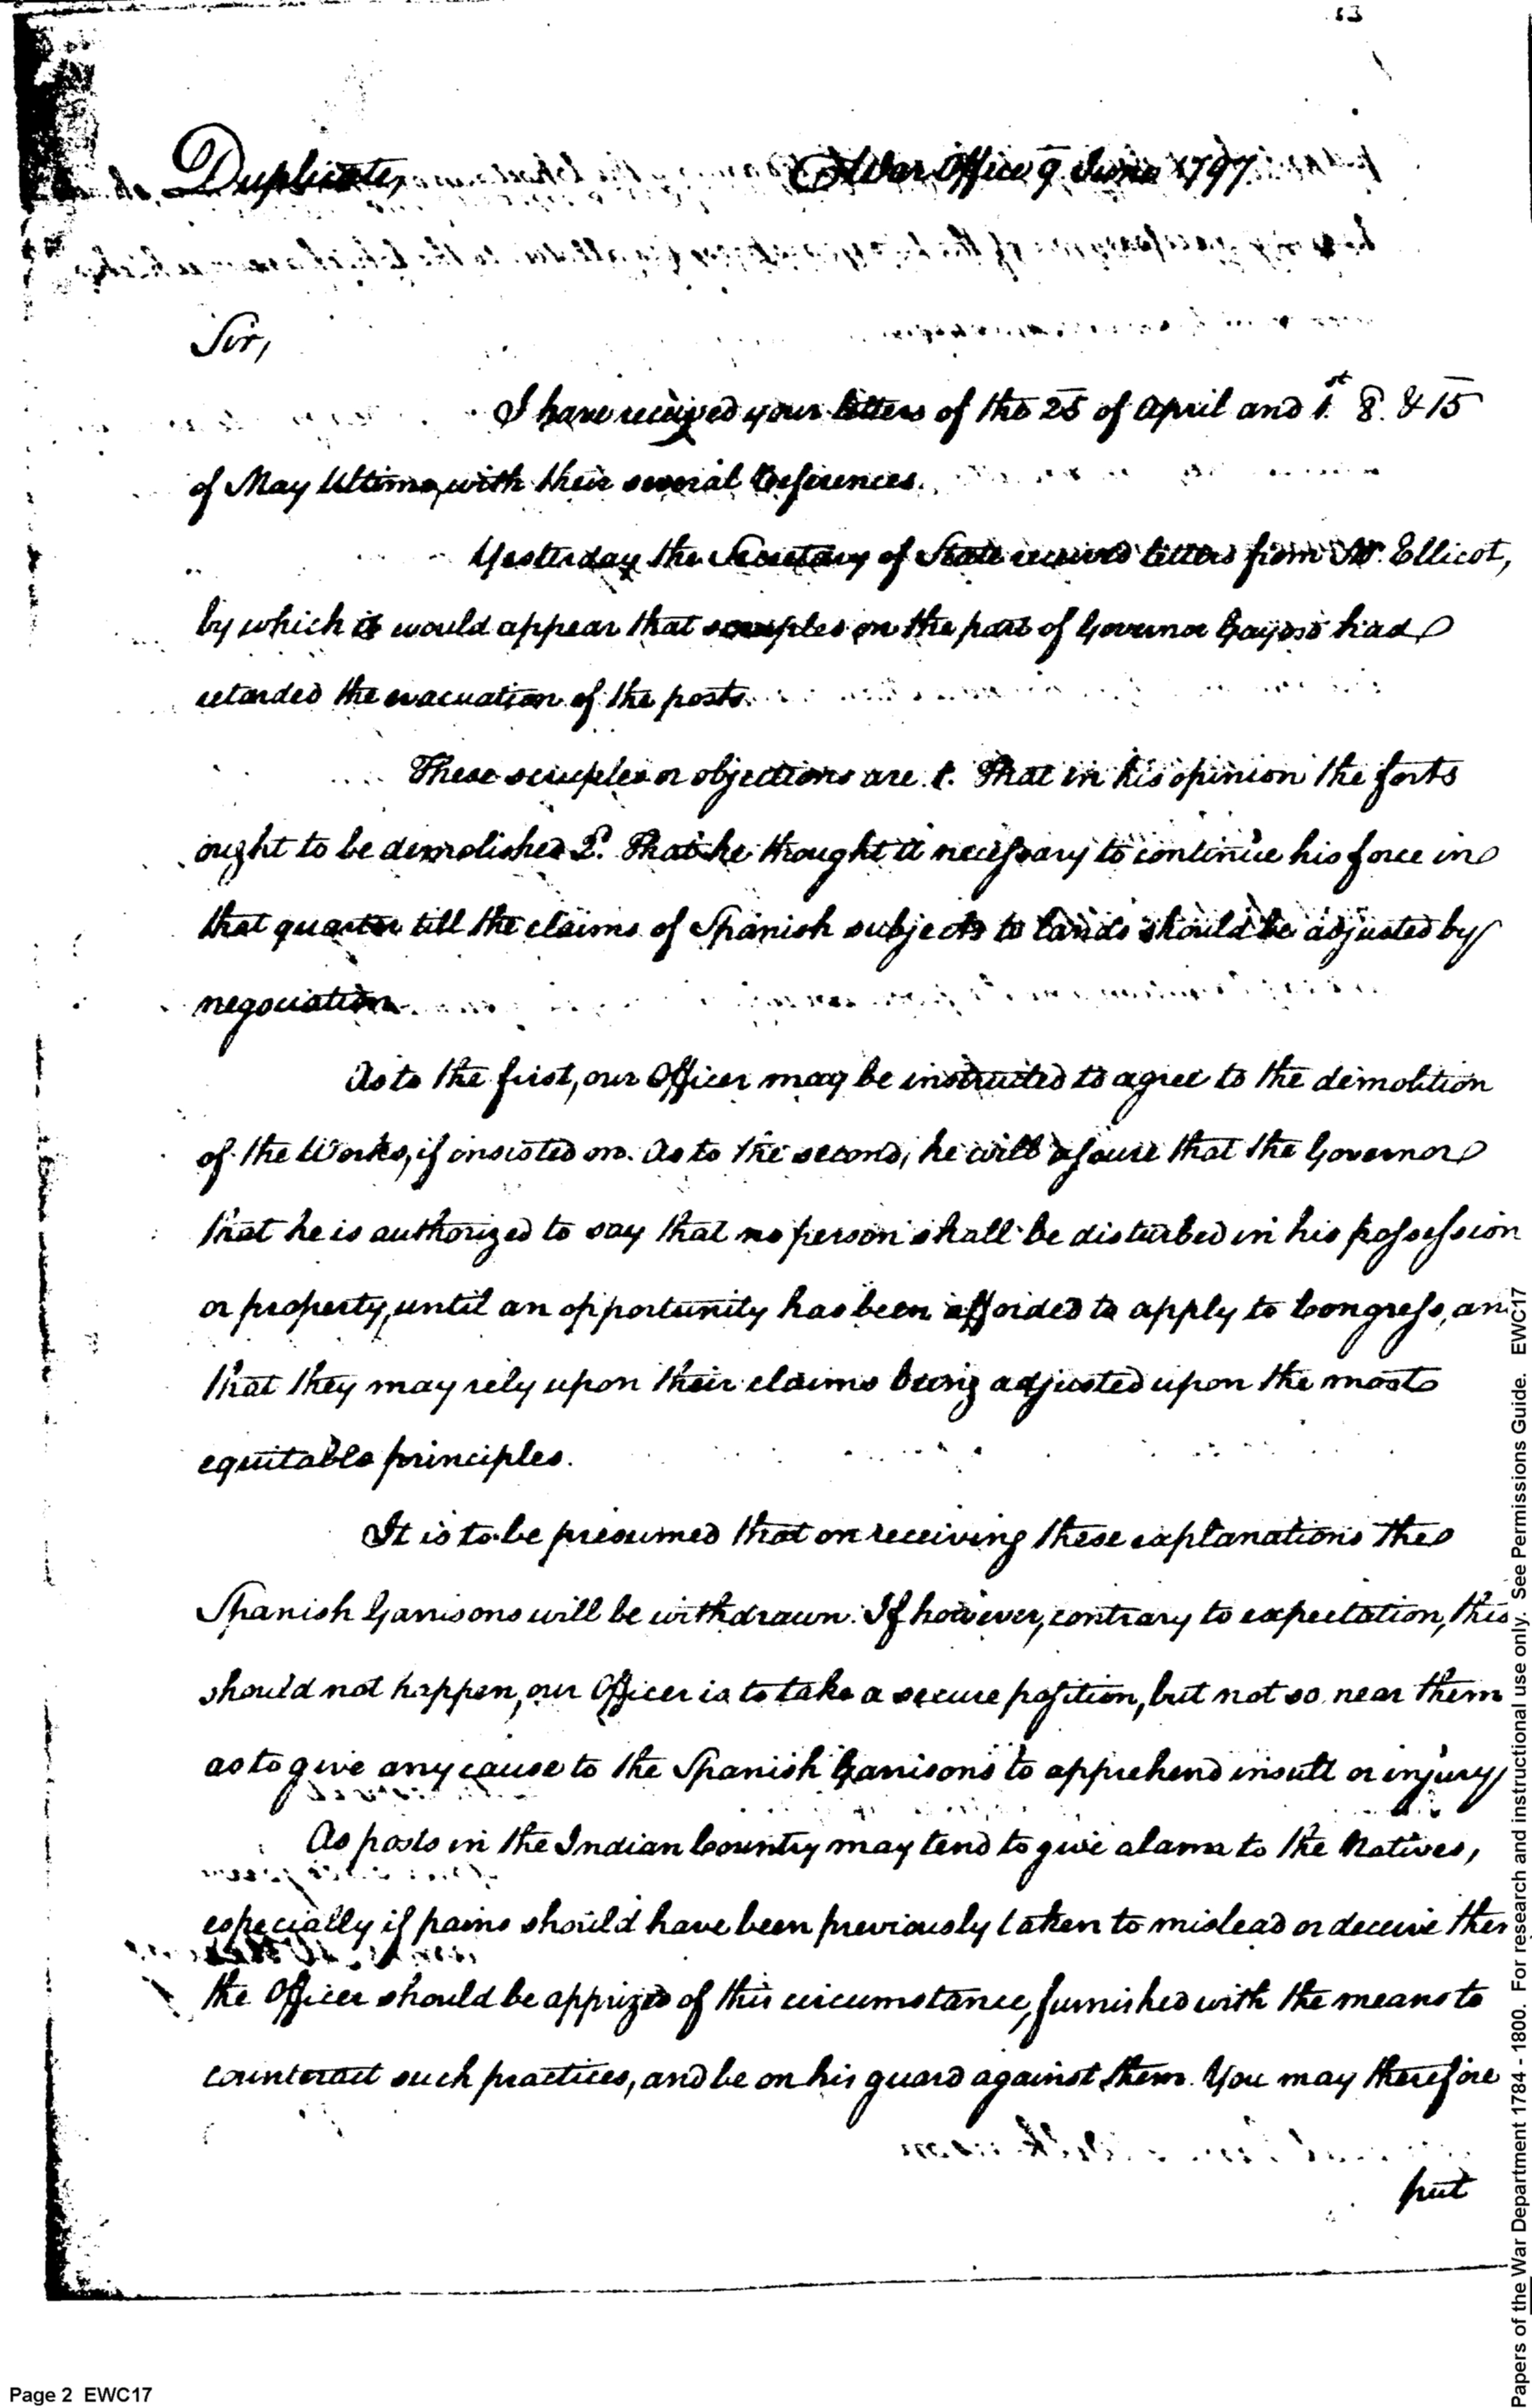 53
Duplicate, War Office 9 June 1797
Sir,
I have received your letters of the 25 of April and 1.st 8. & 15
of May Ultimo, with their several references.
Yesterday the Secretary of State received letters from Mr. Ellicot,
by which it would appear that scruples on the part of Governor Gayoso had
retarded the evacuation of the posts.
These scruples or objections are 1. That in his opinion the forts
ought to be demolished 2d. That he thought it necessary to continue his force in
that quarter till the claims of Spanish subjects to lands should be adjusted by
negociation.
As to the first, our Officer may be instructed to agree to the demolition
of the Works, if insisted on. As to the second, he will assure that the Governor
that he is authorized to say that no person shall be disturbed in his possession
or property, until an opportunity has been afforded to apply to Congress, an
that they may rely upon their claims being adjusted upon the most
equitable principles.
It is to be presumed that on receiving these explanations the
Spanish Garrisons will be withdrawn. If however, contrary to expectation, this
should not happen, our Officer is to take a secure position, but not so near them
as to give any cause to the Spanish Garrisons to apprehend insult or injury
As posts in the Indian Country may tend to give alarm to the Natives,
especially if pains should have been previously taken to mislead or deceive them
the Officer should be apprized of this circumstance, furnished with the means to
counteract such practices, and be on his guard against them. You may therefore
put
Page 2 EWC17
Papers of the War Department 1784 - 1800. For research and instructional use only. See Permissions Guide. EWC17